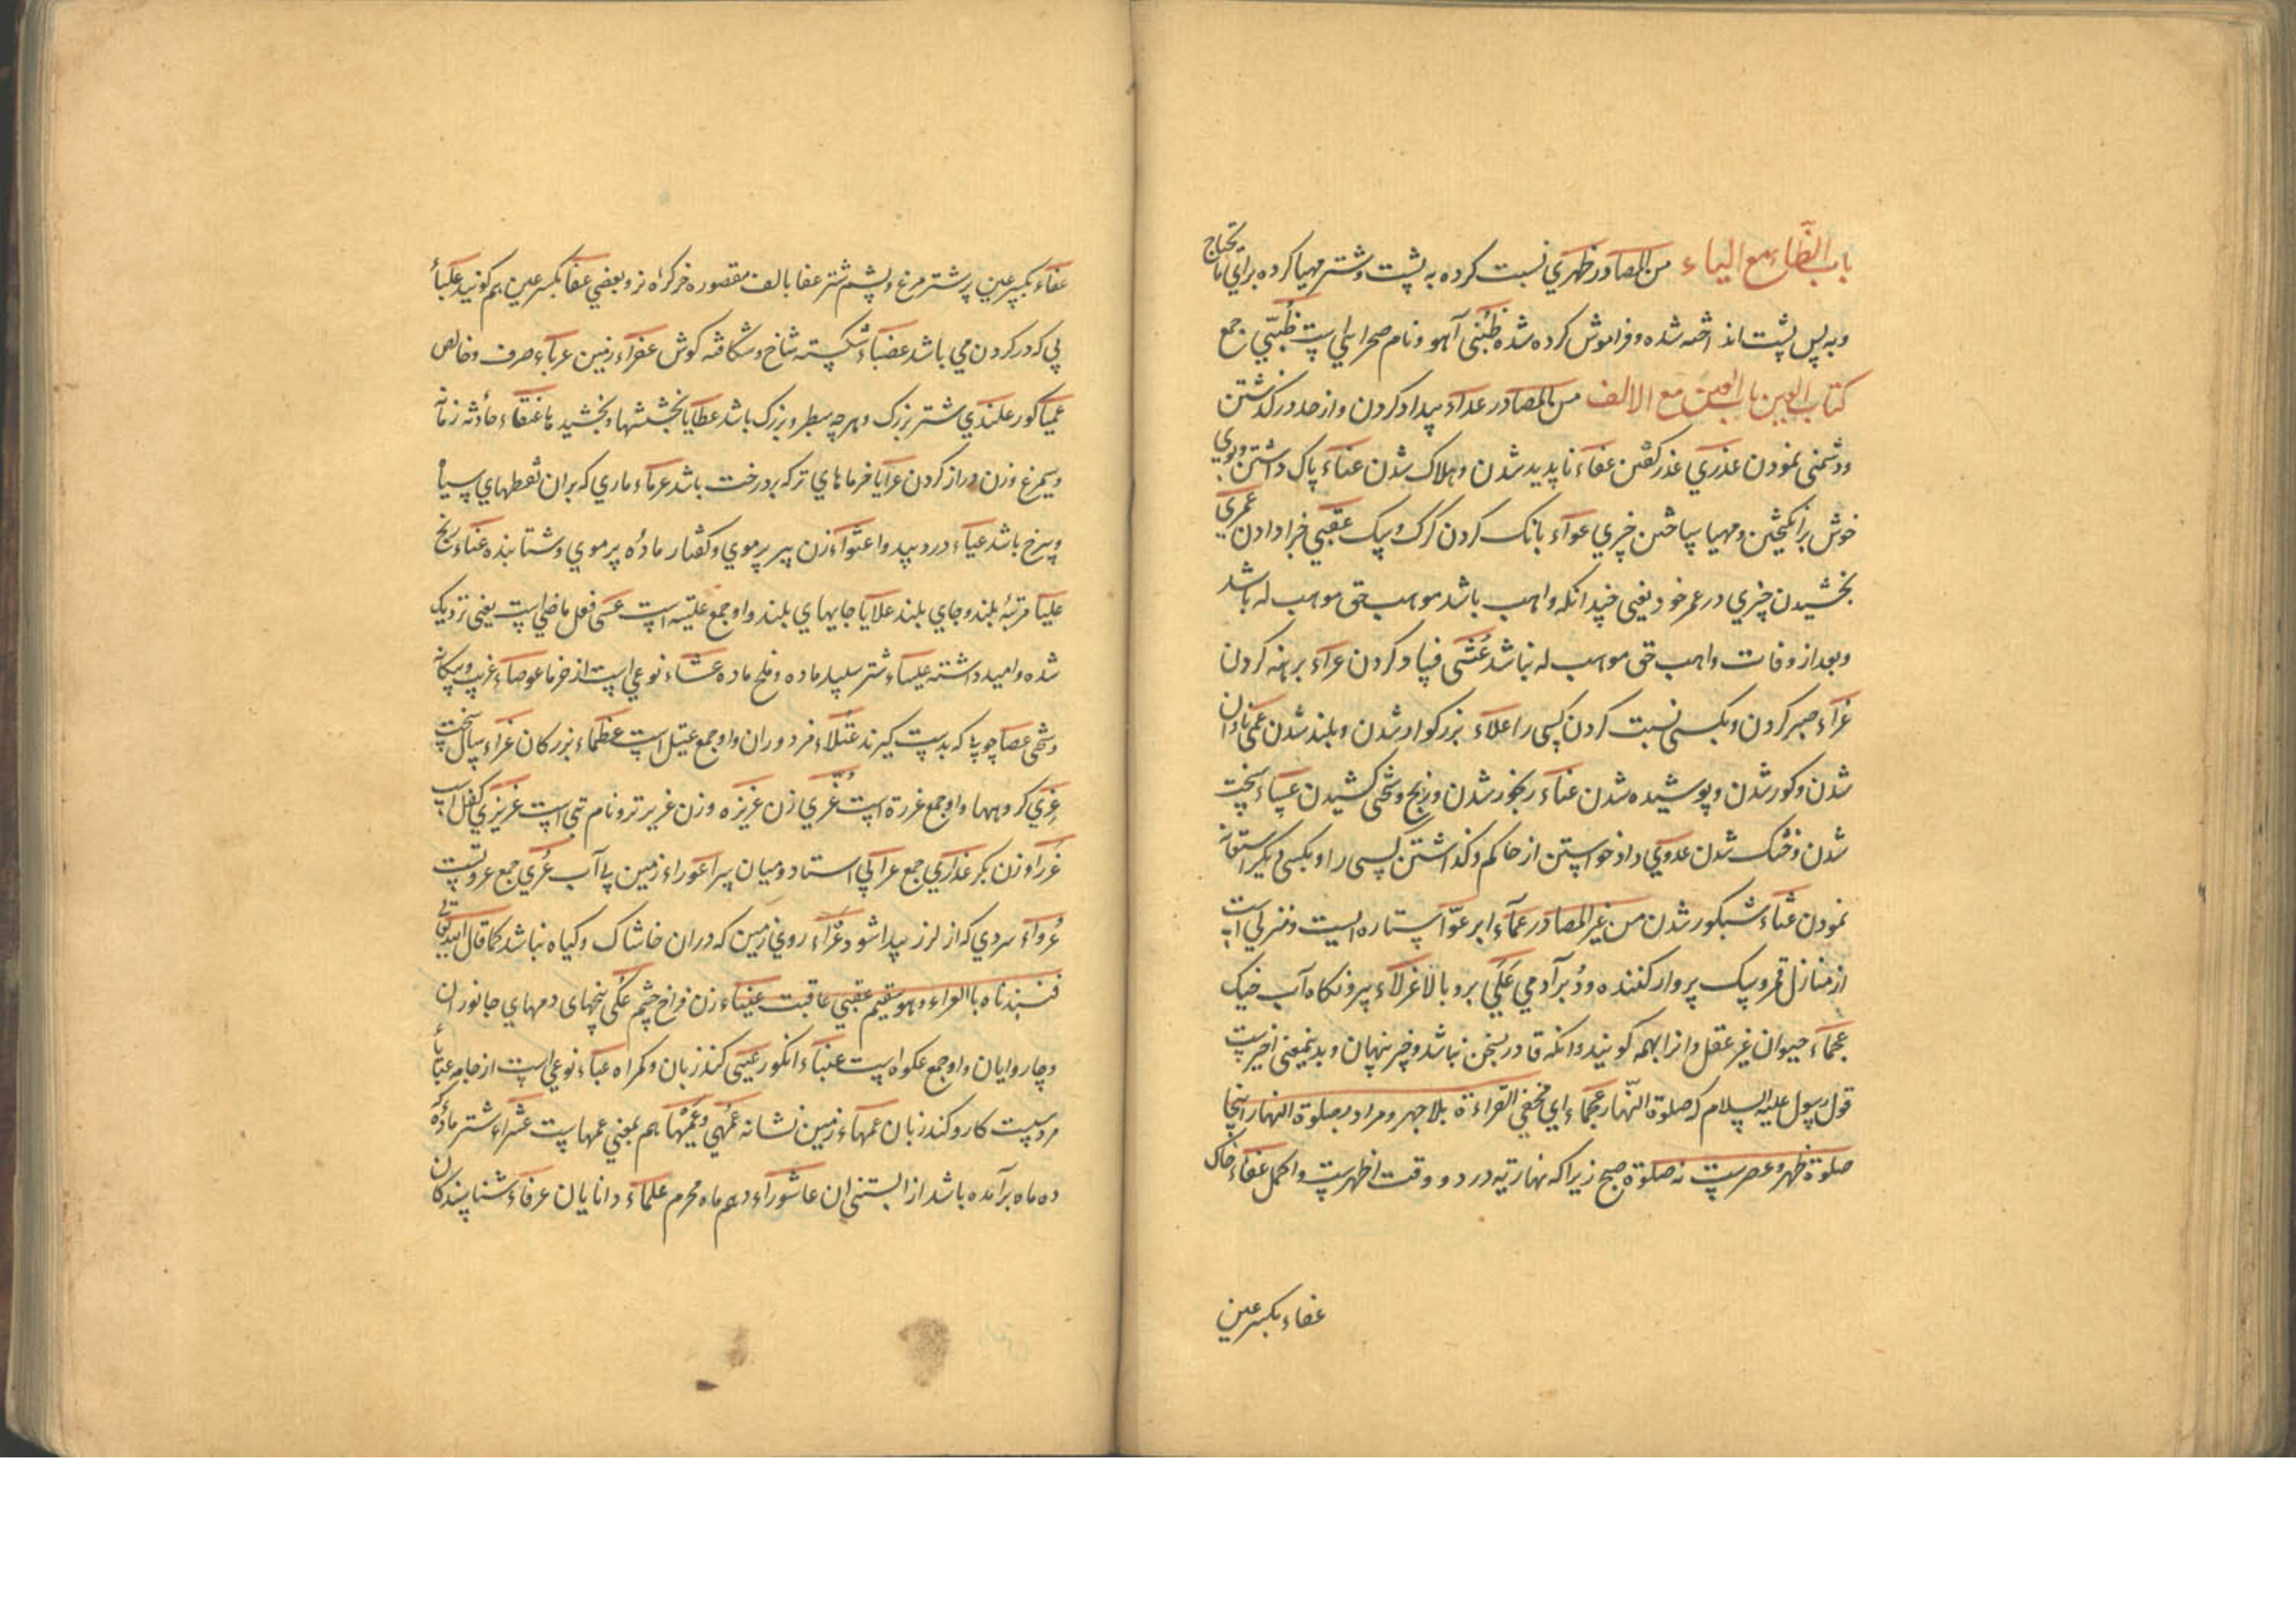 باب الظّاء مع الیاء من المصادر ظهري نسبت کرده به پشت و شتر مهیا کرده برای مایحتاج
و به پس پشت انداخته شده و فراموش کرده شده ظَبْی آهو و نام صحرایی است ظُبّي جمع
کتاب العین باب العین مع الالف من المصادر عداء بیداد کردن و از حد در گذشتن
و دشمنی نمودن عذري عذر گفتن عفاء ناپدید شدن و هلاک شدن عفاء پاک داشتن و بوي
خوش برانگیختن و مهیا ساختن چیزي عواء بانگ کردن گرگ و سگ عقبي جزا دادن عمري
بخشیدن چیزي در عمر خود یعنی چندانکه واهب باشد موهب حق موهب له باشد
و بعد از وفات واهب حق موهب له نباشد عُثى فساد کردن عراء برهنه کردن
عزاء صبر کردن و بکسی نسبت کردن کسی را علاء بزرگوار شدن و بلند شدن عمی نادان
شدن و کور شدن و پوشیده شدن عناء رنجور شدن و رنج و سختی کشیدن عساء سخت
شدن و خشک شدن عدوي داد خواستن از حاکم و گذاشتن کسی را و بکسی دیگر استعانه
نمودن عشاء شبکور شدن من غیر المصادر عماء ابر عوّا ستاره ایست و منزلی است
از منازل قمر و سگ پرواز کننده و دُبر آدمي عَلَي بر و بالا عزلاء بیرونگاه آب خیک
عجماء حیوان غیر عقل و انرا بهیمه گویند و انکه قادر بسخن نباشد و چیز پنهان و بدینمعنی اخیرست
قول رسول علیه السلام که صلوة النّهار عجماء اي مخفي القراءة بلا جهر و مراد بصلوة النهار اینجا
صلوة ظهر و عصر ست نه صلوة صبح زیرا که نهاریته در دو وقت اظهرست و اکمل عفاء خاک
عفاء بکسر عین
عفاء بکسر عین پر شتر مرغ و پشم شتر عفا بالف مقصوره خر کره نر و بعضي عفا بکسر عین هم گویند علباء
پی که در گردن می باشد عضباء شکسته شاخ و شگافته گوش عفراء زمین عرباء صرف و خالص
عمیا کور علندي شتر بزرگ و هر چه سطبر و بزرگ باشد عطایا بخششها و بخشیدها عنقاء حادثه زمانه
و سیمرغ و زن دراز گردن عرایا خرماهاي تر که بر درخت باشد عرماء ماري که بران نقطهاي سیاه
و سرخ باشد عیاء درد بیدوا عثواء زن پیر پر موي و کفتار ماده پر موي و شتابنده عناء رنج
علیا مرتبۀ بلند و جاي بلند علایا جایهاي بلند و او جمع علیه است عسی فعل ماضی است یعنی نزدیک
شده و امید داشته عیساء شتر سپید ماده و ملخ ماده عشاء نوعی است از خرما عوصاء غریب و بیگانه
و سختی عصا چوبی که بدست گیرند عتلاء مزدوران و او جمع عتیل است عظماء بزرگان عزاء سال سخت
عِزي گروهها و او جمع عزة است عُزّي زن عزیزه و زن عزیزتر و نام بتی است عزیزي کفل اسب
عذراء زن بکر عذاري جمع عرا پی استاد و میان سرا عوراء زمین بی آب عُري جمع عروتست
عُرواء سردي که از لرز پیدا شود عَراء روي زمین که دران خاشاک و گیاه نباشد کما قال الله تعالی
فنبذناه بالعراء و هو سقیم عقبي عاقبت عیناء زن فراخ چشم عُکی بیخهای دمهاي جانوران
و چاروایان و او جمع عکوه است عنباء انگور عییی کند زبان و گمراه عباء نوعی است از جامه عیایاء
مرد سست کار و کند زبان عمهاء زمین نشانه عُمهي و عمیهاء هم بمعني عمها ست عشراء شتر ماده که
ده ماه برآمده باشد از ابستنی ان عاشوراء دهم ماه محرم علماء دانایان عرفاء شناسندکان